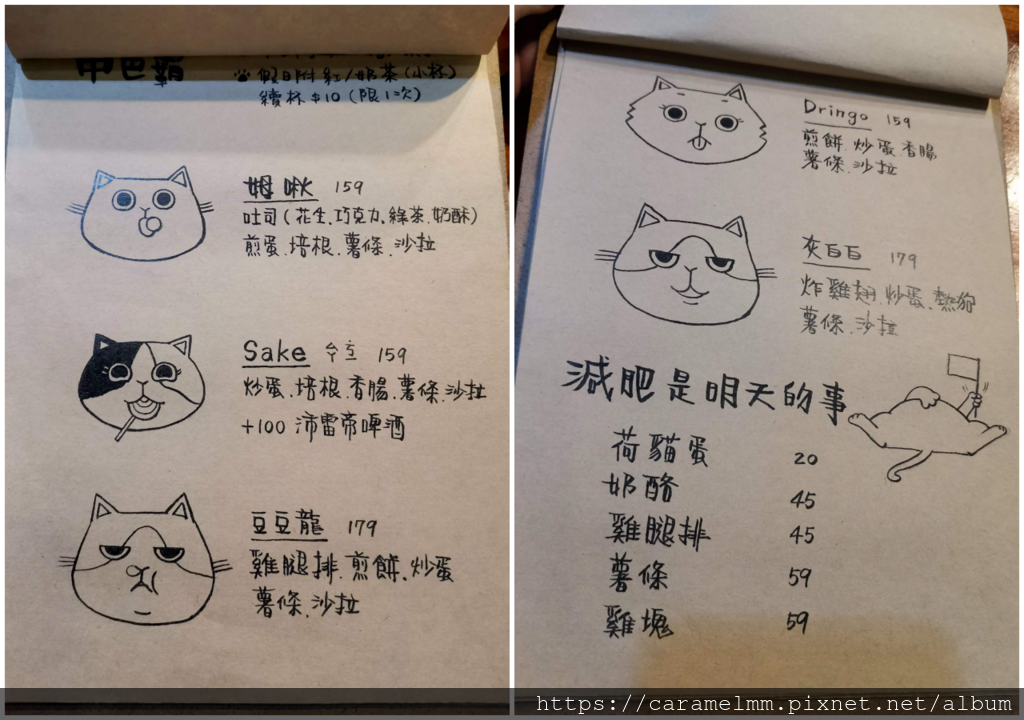 甲巴霸
假日附紅/奶茶(小杯)
續杯$10(限1次)
姆啾 159
吐司(花生、巧克力、綠茶、奶酥)
煎蛋、培根、薯條、沙拉
Sake 159
炒蛋、培根、香腸、薯條、沙拉
+100 沛雷帝啤酒
豆豆龍 179
雞腿排、煎餅、炒蛋
薯條、沙拉
Dringo 159
煎餅、炒蛋、香腸
薯條、沙拉
灰白白 179
炸雞翅、炒蛋、熱狗
薯條、沙拉
減肥是明天的事
荷貓蛋 20
奶酪 45
雞腿排 45
薯條 59
雞塊 59
https://caramelmm.pixnet.net/album